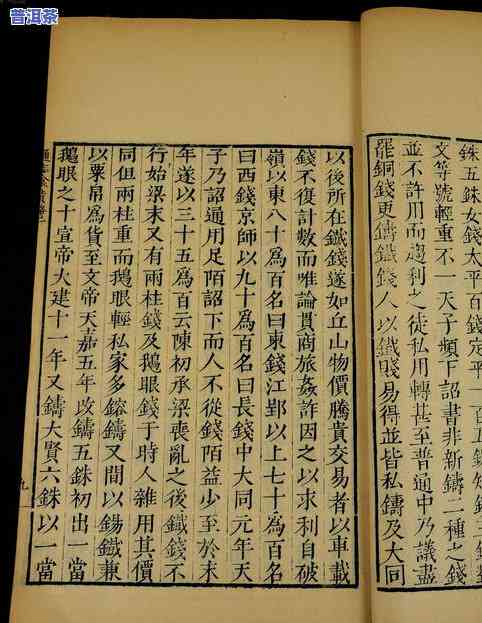 普洱茶
銖五銖女錢太平百錢
文等號輕重不一天子頻下詔書非新鑄二種之錢
並不許用而趨利之徒私用轉甚至普通中乃議盡
罷銅錢更鑄鐵錢人以鐵賤易得並皆私鑄及大同
以後所在鐵錢遂如丘山物價騰貴交易者以車載
錢不復計數而唯論貫商旅姦詐因之以求利自破
嶺以東八十爲百名曰東錢江郢以上七十爲百名
曰西錢京師以九十爲百名曰長錢中大同元年天
子乃詔通用足陌詔下而人不從錢陌益少至於末
年遂以三十五爲百云陳初承梁喪亂之後鐵錢不
行始梁末又有兩柱錢及鵝眼錢于時人雜用其價
同但兩柱重而鵝眼輕私家多鎔鑄又間以錫鐵兼
以粟帛爲貨至文帝天嘉五年改鑄五銖初出一當
鵝眼之十宣帝大建十一年又鑄大賢六銖以一當